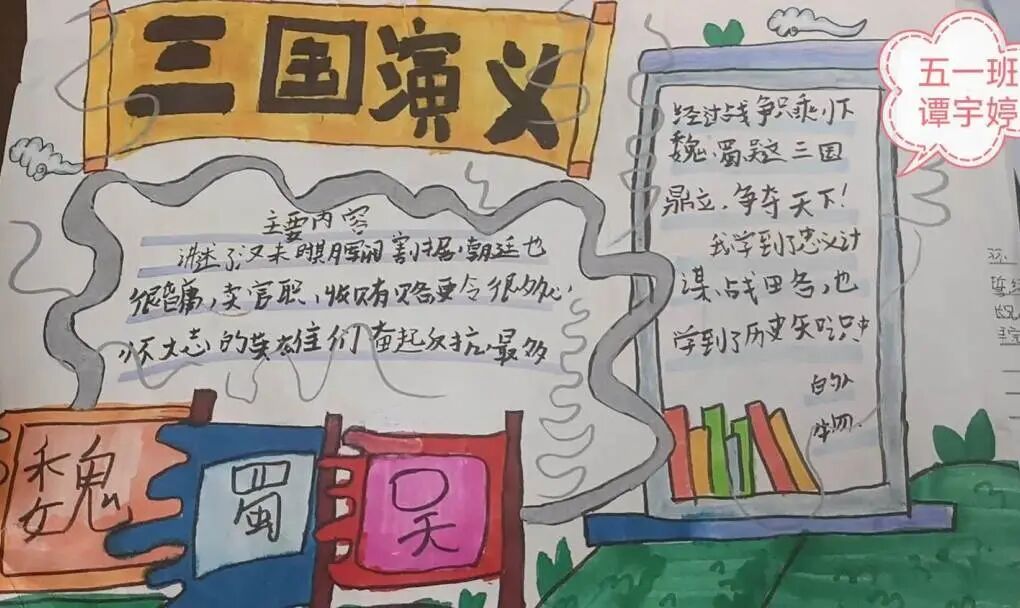 三国演义
五一班
谭宇婷
主要内容
讲述了汉末 割据,朝廷也
很 ,卖官职,收贿赂更令很多心
怀大志的英雄们奋起反抗.最多
经过战争只乘小下
魏.蜀吴这三国
鼎立.争夺天下!
我学到了忠义计
谋.战田各,也
学到了历史知识史
白勺
牛四.
魏
蜀
吴